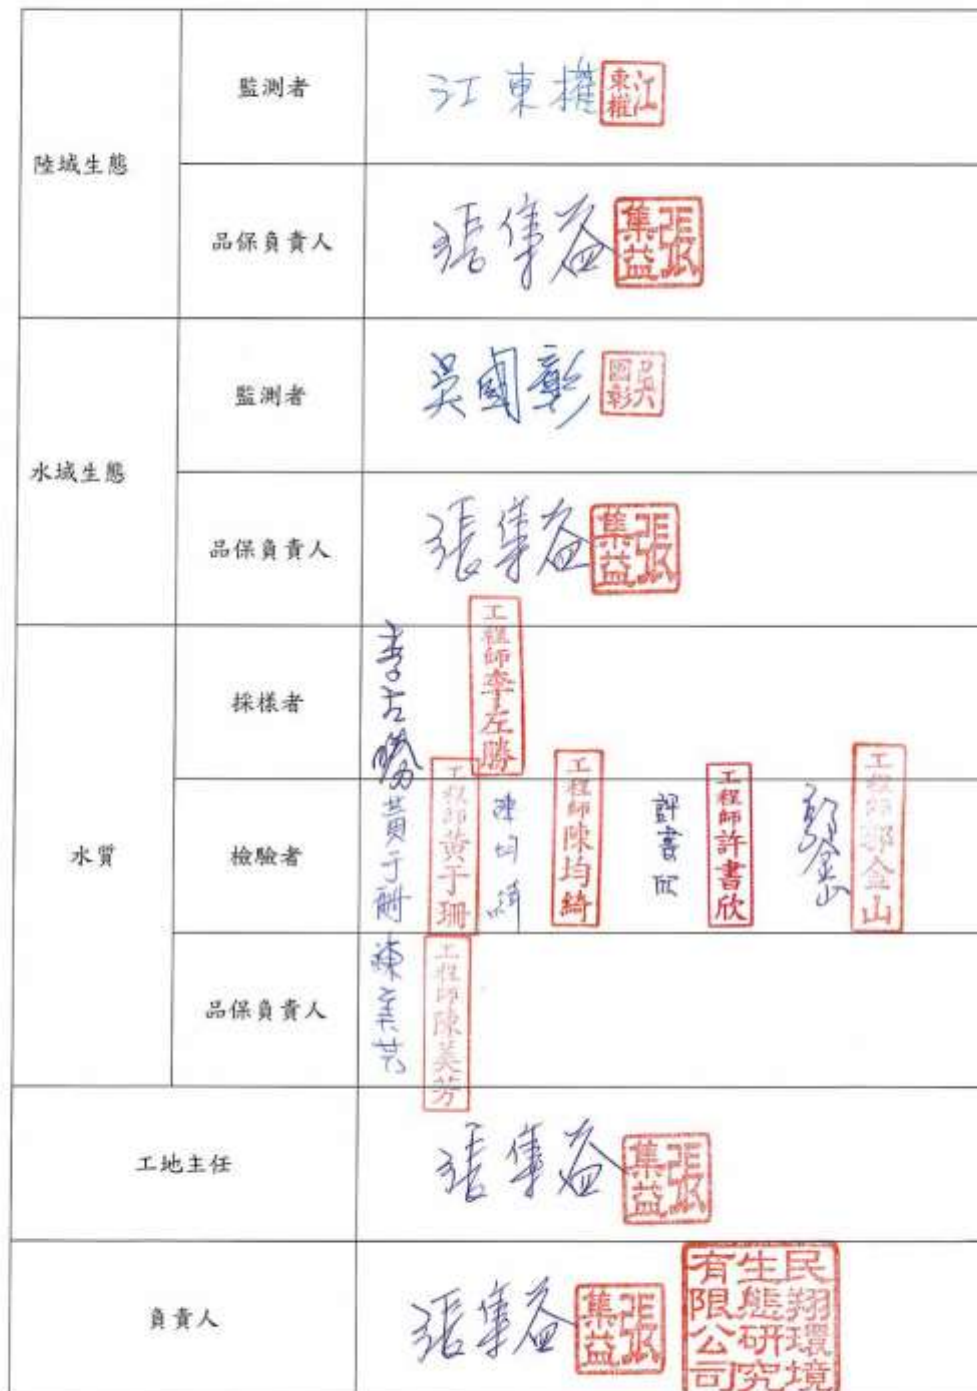 陸域生態
監測者
江東權
江東權
品保負責人
張集益
張集益
水域生態
監測者
吳國彰
吳國彰
品保負責人
張集益
張集益
水質
採樣者
李左勝
工程師李左勝
檢驗者
黃于珊
工程師黃于珊
陳均綺
工程師陳均綺
許書欣
工程師許書欣
郭金山
工程師郭金山
品保負責人
陳美芳
工程師陳美芳
工地主任
張集益
張集益
負責人
張集益
張集益
民翔環境生態研究有限公司